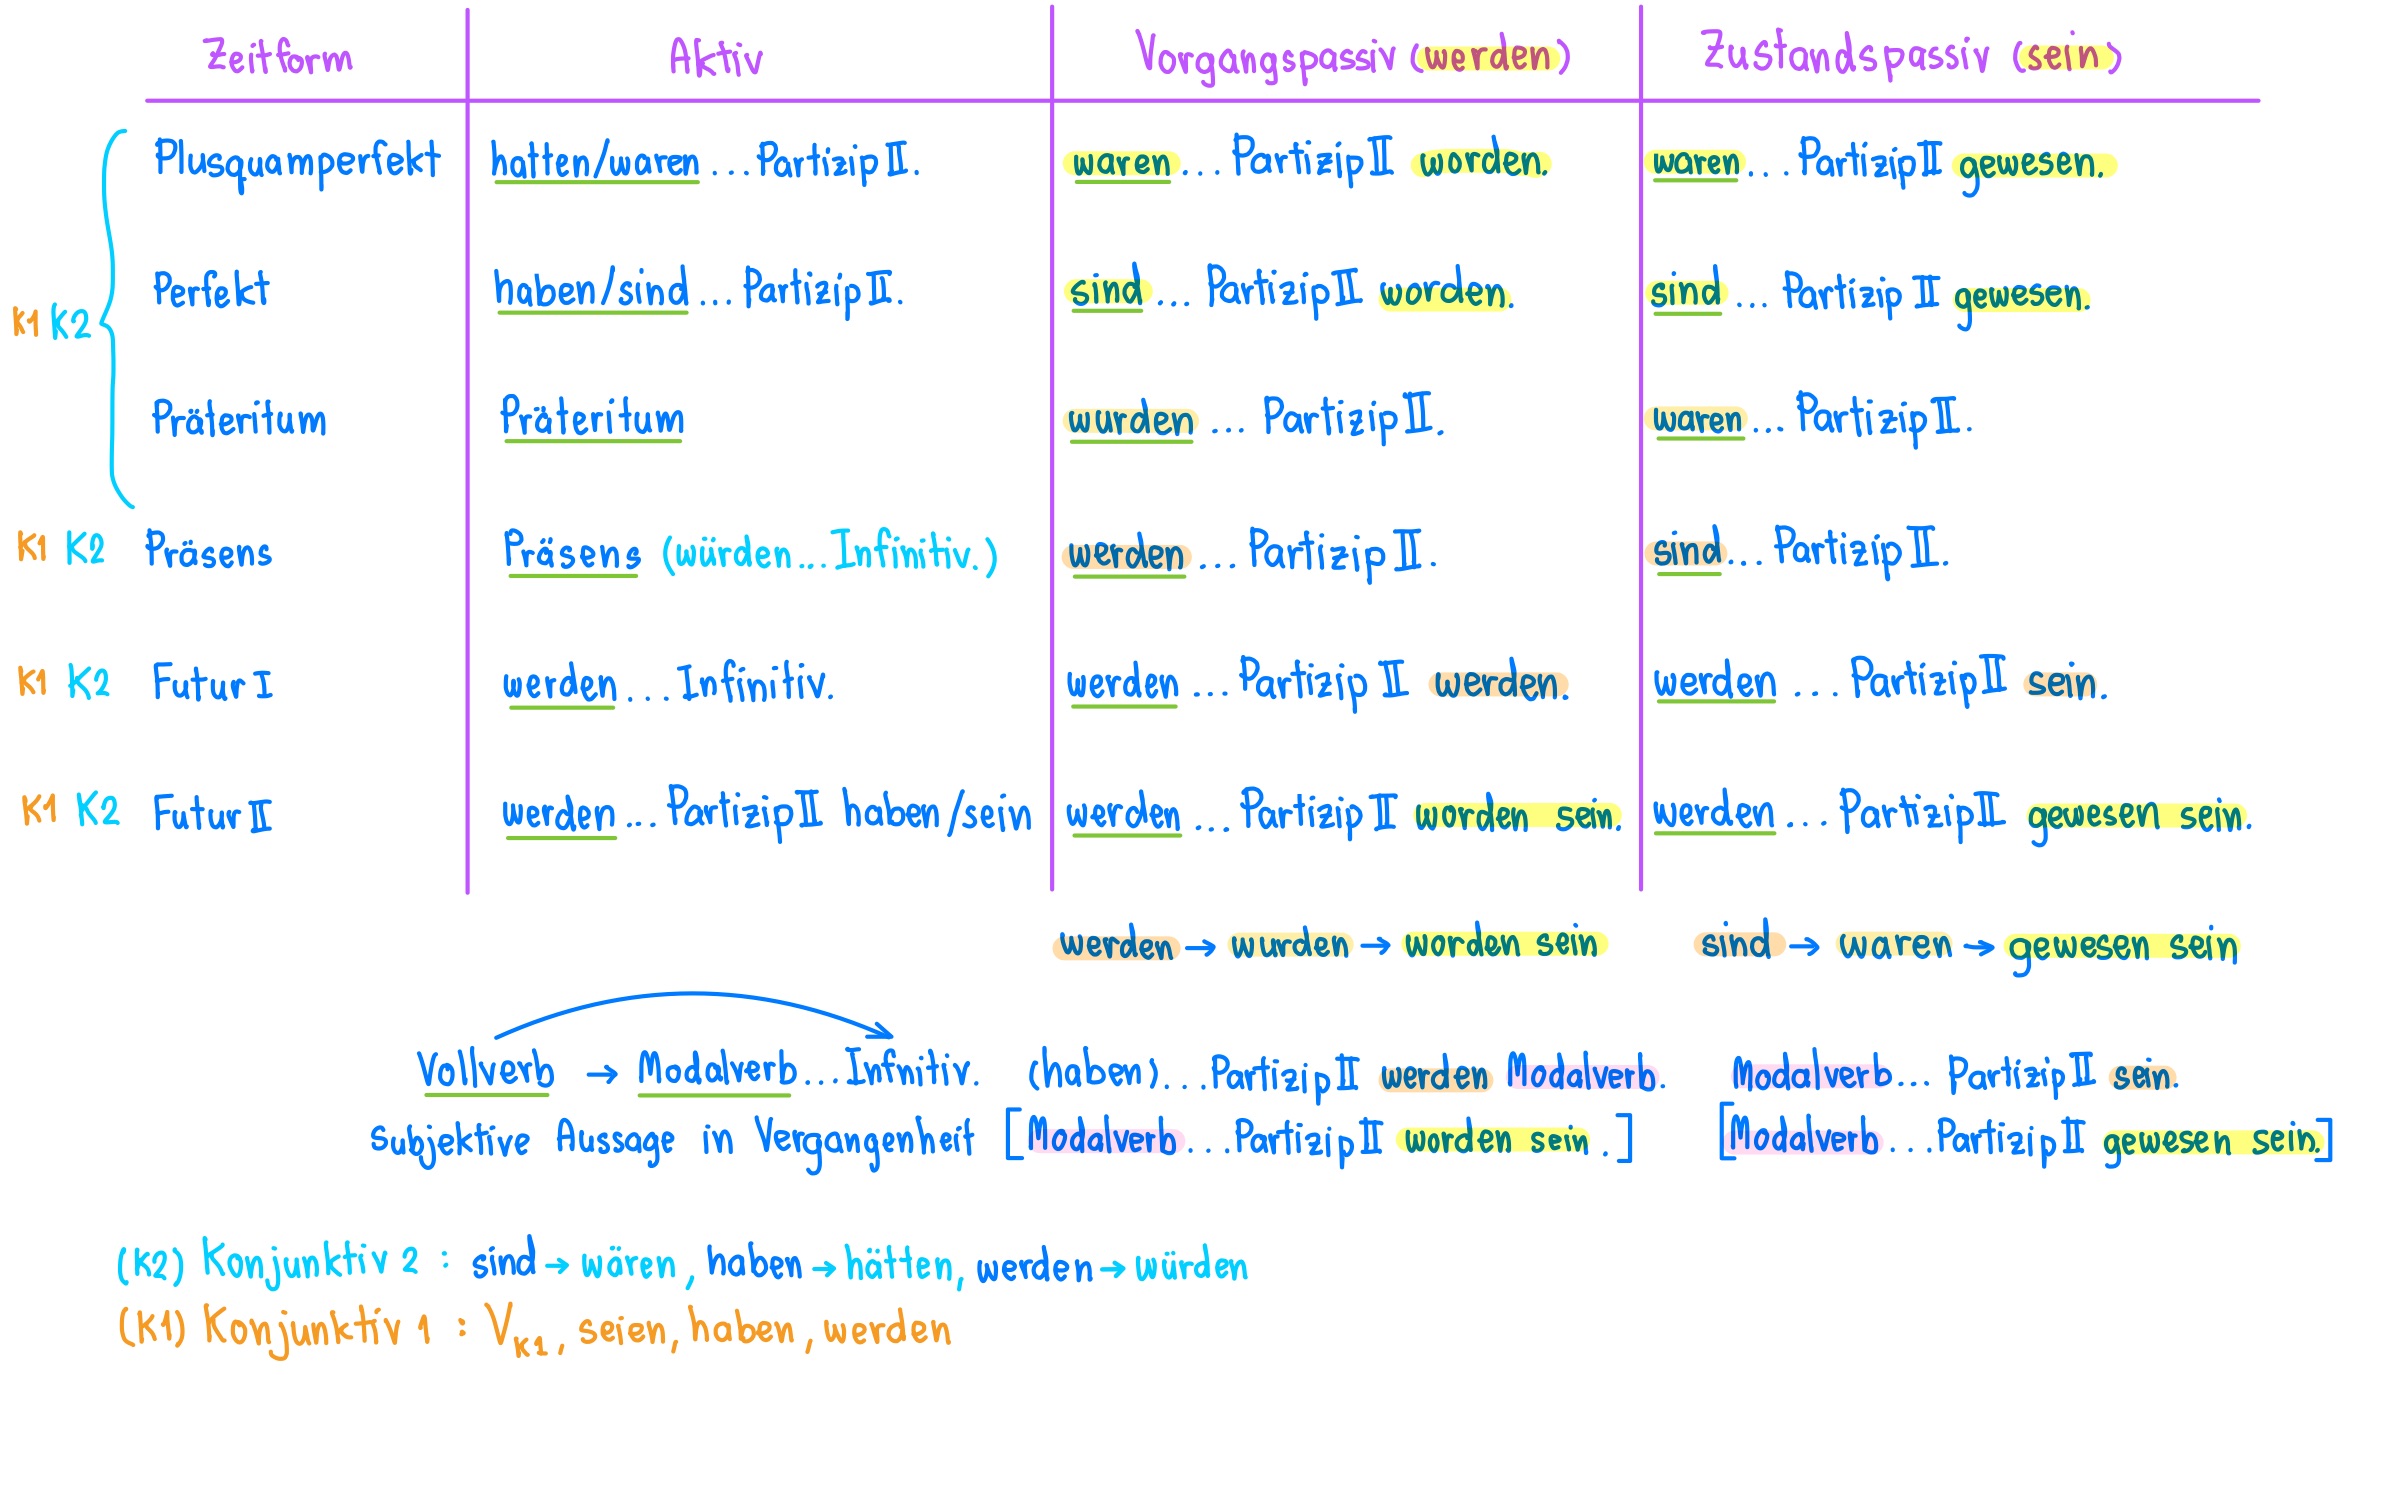 Zeitform Aktiv Vorgangspassiv (werden) Zustandspassiv (sein)
Plusquamperfekt hatten/waren ... Partizip II. waren ... Partizip II worden. waren ... Partizip II gewesen.
K1 K2 Perfekt haben/sind ... Partizip II. sind ... Partizip II worden. sind ... Partizip II gewesen.
Präteritum Präteritum wurden ... Partizip II. waren ... Partizip II.
K1 K2 Präsens Präsens (würden ... Infinitiv.) werden ... Partizip II. sind ... Partizip II.
K1 K2 Futur I werden ... Infinitiv. werden ... Partizip II werden. werden ... Partizip II sein.
K1 K2 Futur II werden ... Partizip II haben/sein werden ... Partizip II worden sein. werden ... Partizip II gewesen sein.
werden → wurden → worden sein sind → waren → gewesen sein
Vollverb → Modalverb ... Infinitiv. (haben) ... Partizip II werden Modalverb. Modalverb ... Partizip II sein.
subjektive Aussage in Vergangenheit [Modalverb ... Partizip II worden sein.] [Modalverb ... Partizip II gewesen sein.]
(K2) Konjunktiv 2 : sind → wären, haben → hätten, werden → würden
(K1) Konjunktiv 1 : V K1, seien, haben, werden